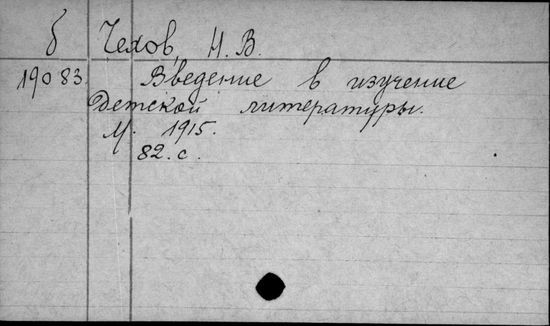 б Чехов, Н. В.
19083. Введение в изучение
Детской литературы.
М. 1915.
82. с.